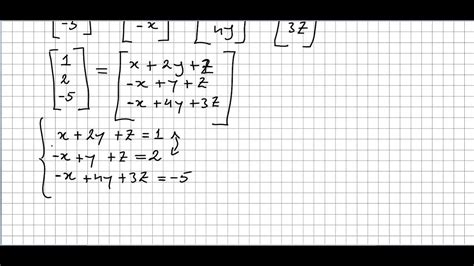 -5 -x 4y 3z
[1 2 -5] = [x + 2y + z
-x + y + z
-x + 4y + 3z]
x + 2y + z = 1
-x + y + z = 2
-x + 4y + 3z = -5